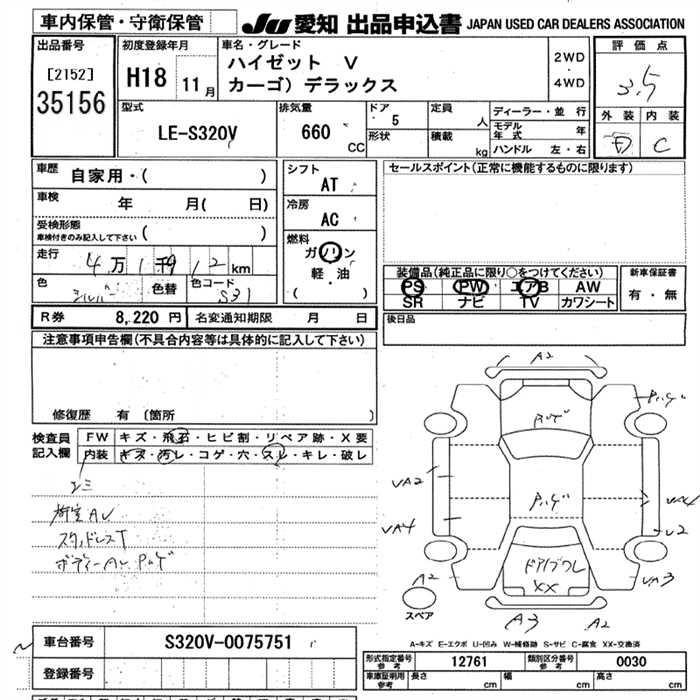 車内保管・守衛保管
JU 愛知 出品申込書 JAPAN USED CAR DEALERS ASSOCIATION
出品番号
[2152]
35156
初度登録年月
H18 11月
車名・グレード
ハイゼット V
カーゴ) デラックス
2WD
・
4WD
評価点
3.5
外装 内装
C
型式
LE-S320V
排気量
660
CC
ドア
5
形状
定員
人
積載
kg
ディーラー・並行
モデル
年式
ハンドル 左・右
車歴
自家用・( )
車検
年 月( 日)
受検形態
車検付きのみ記入して下さい ( )
走行
4万1千912km
色
シルバー
色替
色コード
S31
シフト
AT
冷房
AC
燃料
ガソリン
軽・油
( )
セールスポイント(正常に機能するものに限ります)
装備品(純正品に限り○をつけてください)
PS PW エアB AW
SR ナビ TV カワシート
新車保証書
有・無
後日品
R券 8,220 円
名変通知期限 月 日
注意事項申告欄(不具合内容等は具体的に記入して下さい)
修復歴 有 〔箇所
検査員
記入欄
FW キズ・飛石・ヒビ割・リペア跡・X要
内装 キズ・汚レ・コゲ・穴・スレ・キレ・破レ
シミ
荷室AU
スタッドレスT
A2
UA2
UA4
U2
UA3
A2
A3
A2
XX
スペア
A-キズ E-エクボ U-凹み W-補修跡 S-サビ C-腐食 XX-交換済
車台番号
S320V-0075751
登録番号
形式指定番号
参考
12761
類別区分番号
参考
0030
車庫証明用
参考
長さ cm 幅 cm 高さ cm